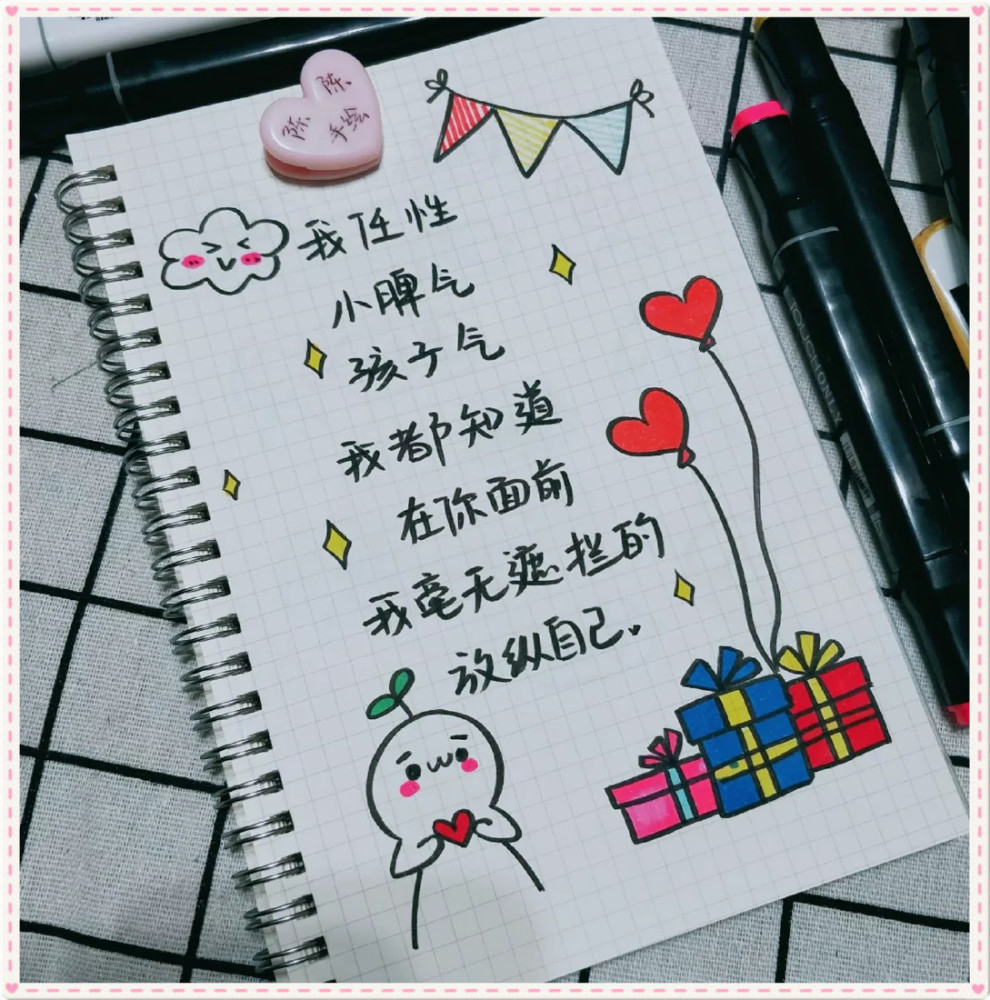 陈
陈
手绘
我任性
小脾气
孩子气
我都知道
在你面前
我毫无遮拦的
放纵自己。